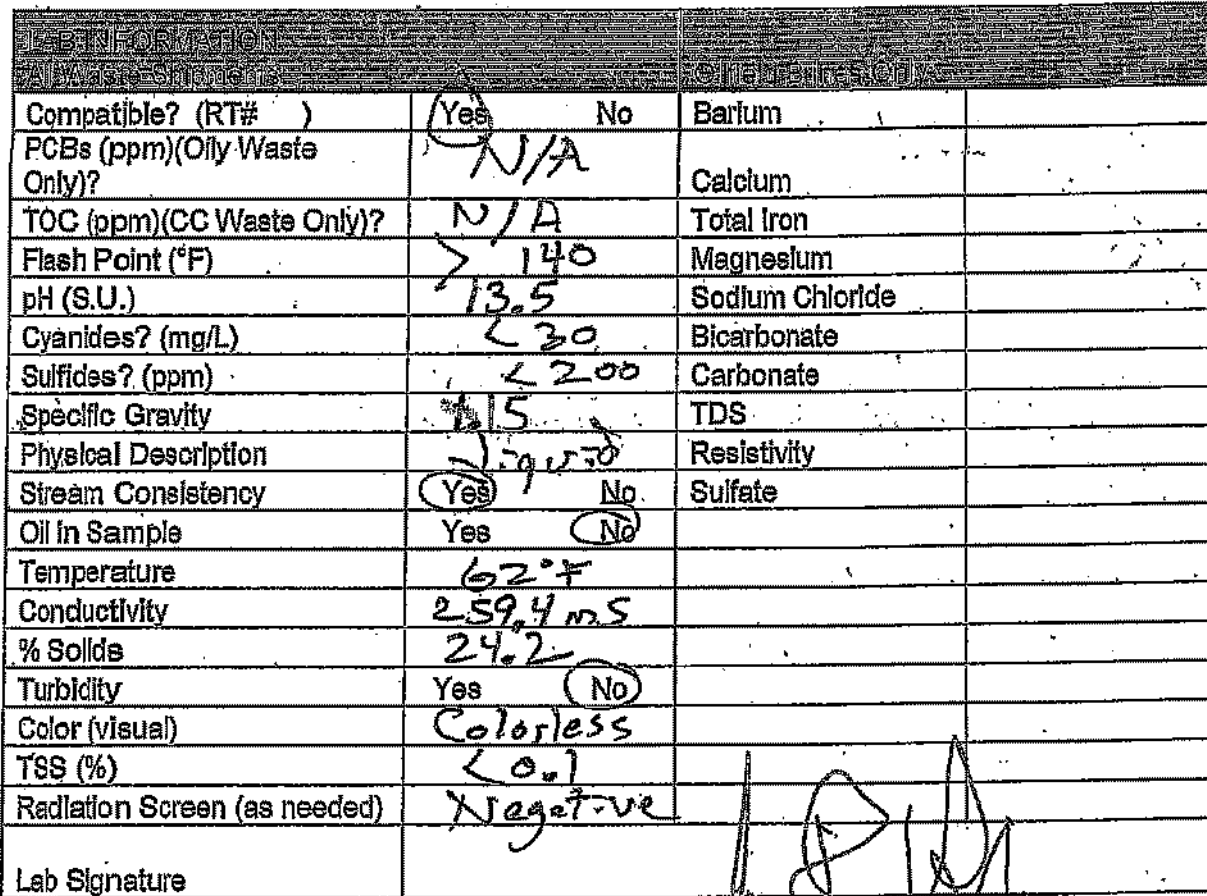 LAB INFORMATION
All Waste Shipments
Compatible? (RT# ) Yes No Barium
PCBs (ppm)(Oily Waste Only)? N/A Calcium
TOC (ppm)(CC Waste Only)? N/A Total Iron
Flash Point (°F) > 140 Magnesium
pH (S.U.) 13.5 Sodium Chloride
Cyanides? (mg/L) < 30 Bicarbonate
Sulfides? (ppm) < 200 Carbonate
Specific Gravity 1.15 TDS
Physical Description Liquid Resistivity
Stream Consistency Yes No Sulfate
Oil in Sample Yes No
Temperature 62°F
Conductivity 259.4 mS
% Solids 24.2
Turbidity Yes No
Color (visual) Colorless
TSS (%) < 0.1
Radiation Screen (as needed) Negative
Lab Signature